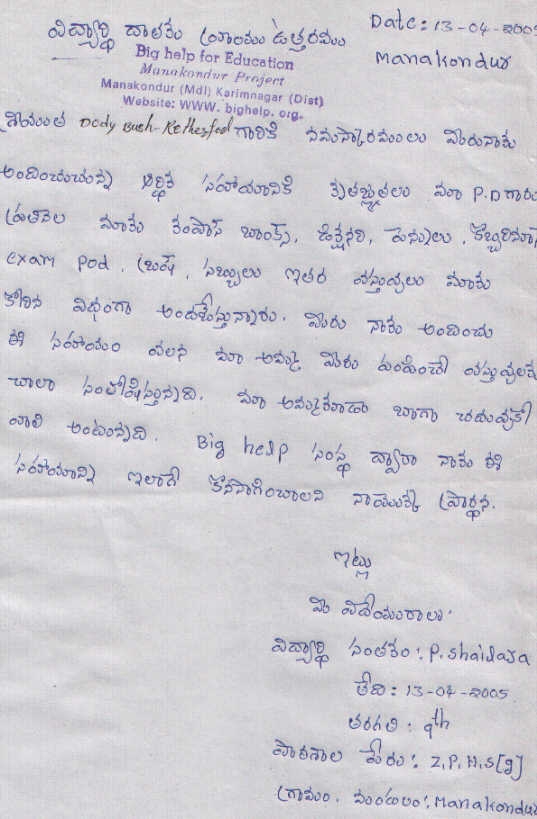 విద్యార్థి దాతకు వ్రాయు ఉత్తరము
Date: 13-04-2005
Manakondur
Big help for Education
Manakondur Project
Manakondur (Mdl) Karimnagar (Dist)
Website: WWW. bighelp. org.
శ్రీయుత Dody Bush గారికి నమస్కారములు మీరు నాకు
అందించుచున్న ఆర్థిక సహాయానికి కృతజ్ఞతలు మా P.D గారు
ప్రతినెల మాకు కంపాస్ బాక్స్, డిక్షనరి, పెన్నులు, కొబ్బరినూనె
exam pad, బ్రష్, సబ్బులు ఇతర వస్తువులు మాకు
కోరిన విధంగా అందజేస్తున్నారు. మీరు నాకు అందించు
ఈ సహాయం వలన మా అమ్మ మీరు పంపించే వస్తువులకు
చాలా సంతోషిస్తున్నది. మా అమ్మ కూడా బాగా చదువుకో
వాలి అంటున్నది. Big help సంస్థ ద్వారా నాకు ఈ
సహాయాన్ని ఇలాగే కొనసాగించాలని నా యొక్క ప్రార్థన.
ఇట్లు
మీ విదేయురాలు
విద్యార్థి సంతకం: P. shailaja
తేది: 13-04-2005
తరగతి: 9th
పాఠశాల పేరు: Z.P.H.S[g]
గ్రామం. మండలం: Manakondur